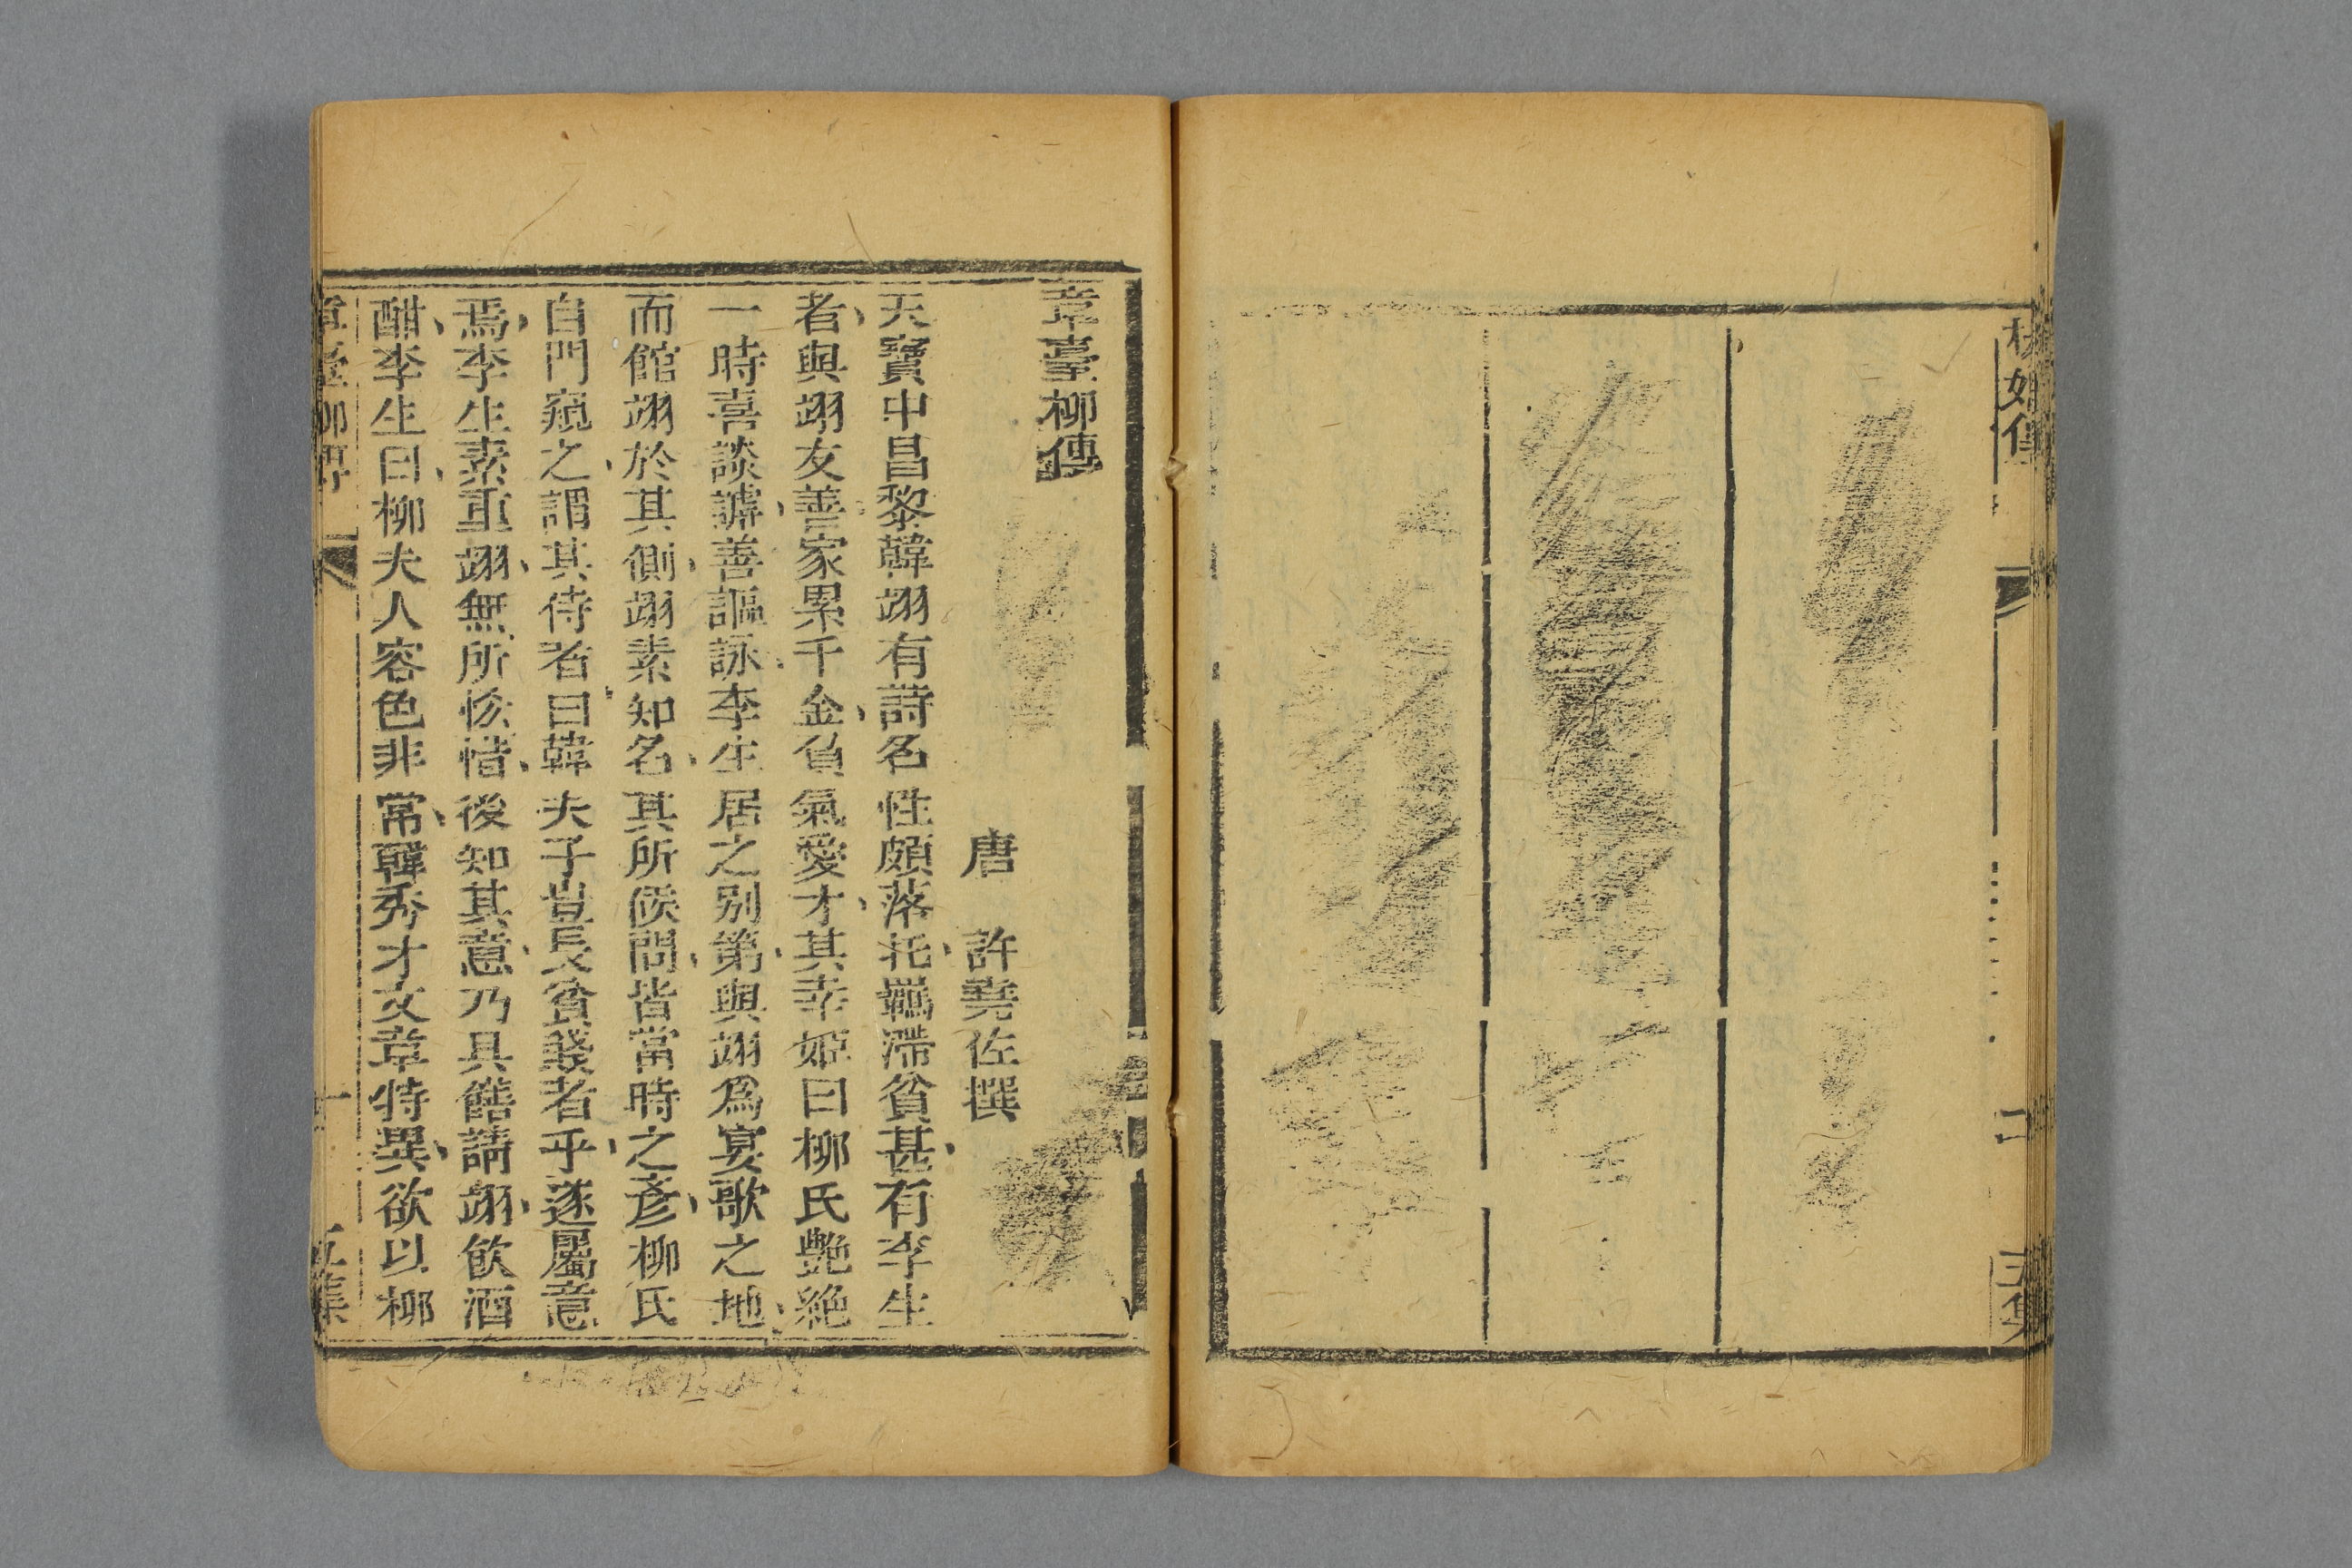 楊娼傳
二
五集
章臺柳傳
唐　許堯佐撰
天寶中昌黎韓翊有詩名性頗落托羈滯貧甚有李生
者與翊友善家累千金負氣愛才其幸姬曰柳氏艷絶
一時喜談謔善謳詠李生居之别第與翊爲宴歌之地
而館翊於其側翊素知名其所候問皆當時之彥柳氏
自門窺之謂其侍者曰韓夫子豈長貧賤者乎遂屬意
焉李生素重翊無所恡惜後知其意乃具饍請翊飮酒
酣李生曰柳夫人容色非常韓秀才文章特異欲以柳
章臺柳傳
一
五集